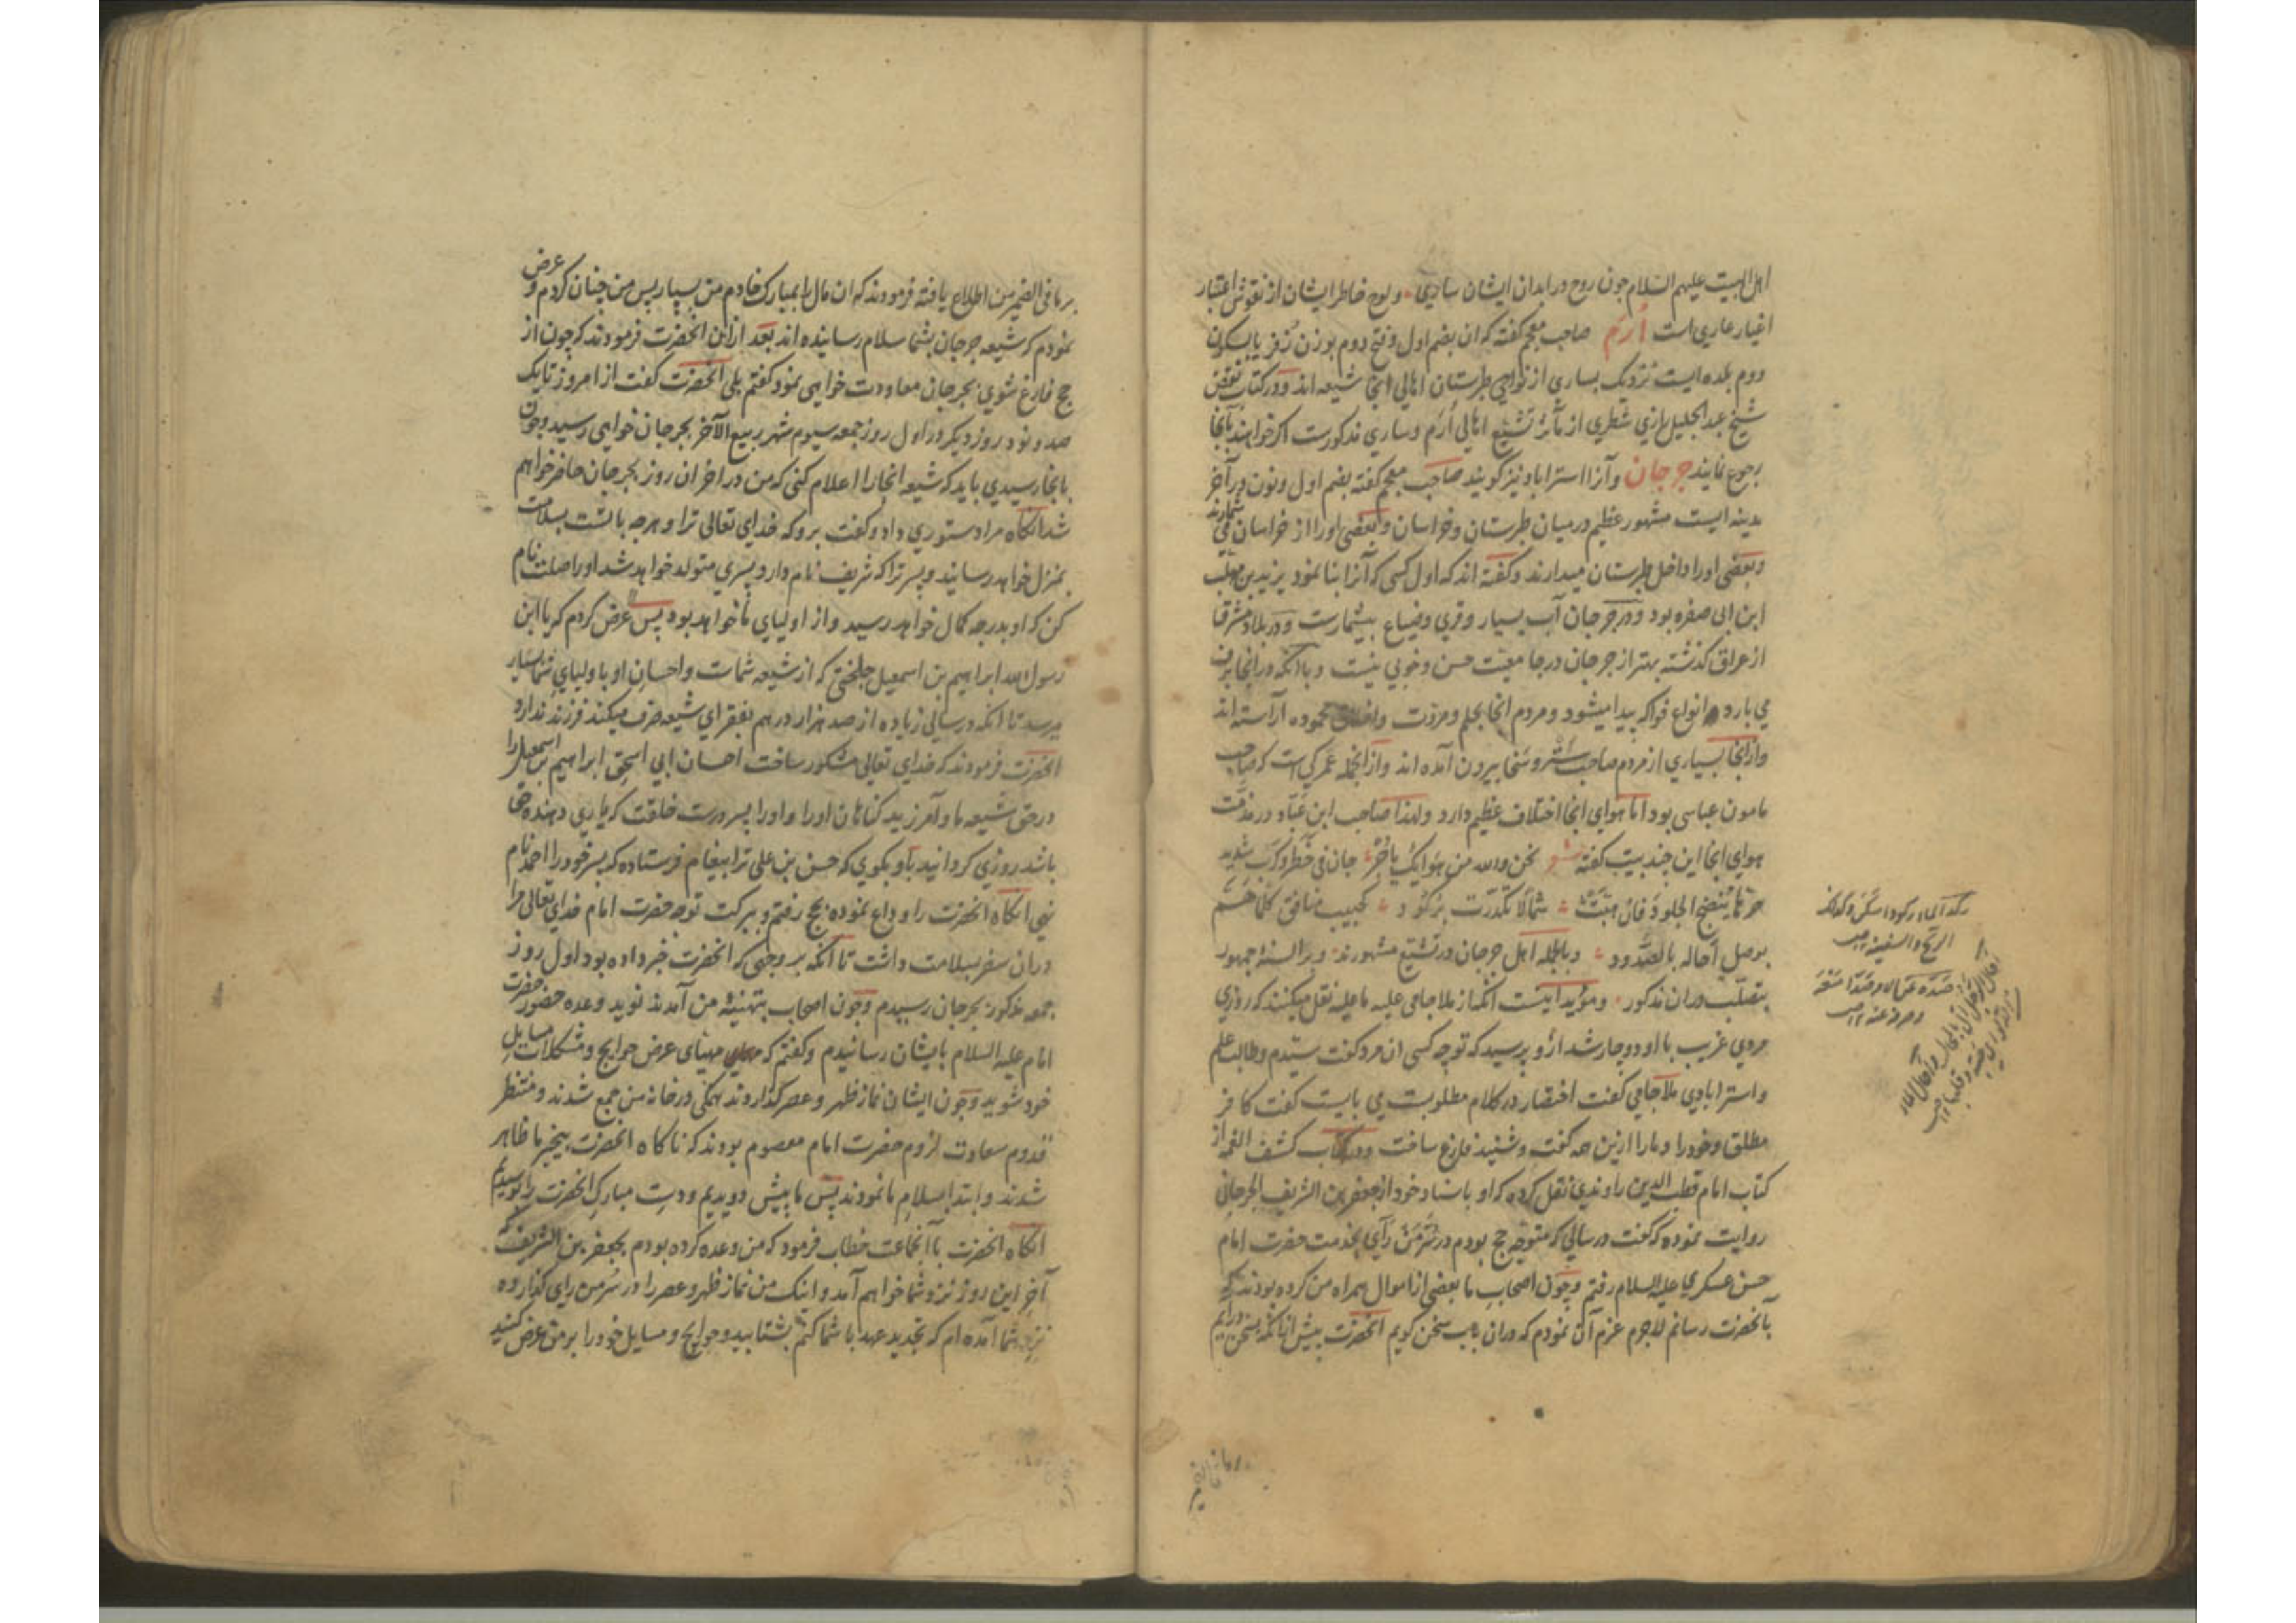 اهل البیت علیهم السلام چون روح در ابدان ایشان ساری و لوح خاطر ایشان از نقوش اعتبار
اغیار عاری است أرَم صاحب معجم گفته که ان بضم اول و فتح دوم بوزن زُفر یا بسکون
دوم بلده ایست نزدیک بساری از نواحی طبرستان اهالی انجا شیعه اند و در کتاب نقض
شیخ عبد الجلیل رازی شطری از مآثر تشیع اهالی أرَم و ساری مذکورست اکر خواهند بآنجا
رجوع نمایند جرجان و آنرا استراباد نیز کویند صاحب معجم کفته بضم اول و نون در آخر
مدینه ایست مشهور عظیم در میان طبرستان و خراسان و بعضی اورا از خراسان می شمارند
و بعضی اورا داخل طبرستان میدارند و کفته اند که اول کسی که آنرا بنا نمود یزید بن مهلب
ابن ابی صفره بود و در جرجان آب بسیار و قری و ضیاع بیشمارست و در بلاد مشرق
از عراق کذشته بهتر از جرجان در جامعیت حسن و خوبی نیست و با آنکه در انجا برف
می بارد انواع فواکه پیدا میشود و مردم انجا بحلم و مروت و اخلاق محموده آراسته اند
و از انجا بسیاری از مردم صاحب ستر و سخا بیرون آمده اند و از انجمله عمرکی است که صاحب
مامون عباسی بود اما هوای انجا اختلاف عظیم دارد و لهذا صاحب ابن عباد در مذمت
هوای انجا این چند بیت کفته شعر نحن والله من هوائک یا جرجان فی خطر وکرب شدید
حرها ینضج الجلود فان هبت شمالا تکدرت برکود کحبیب منافق کلما هَمّ
بوصل أحاله بالصدود و بالجمله اهل جرجان در تشیع مشهورند و بر السنهٔ جمهور
بتصلب دران مذکور و مؤید اینست انکه از ملا جامی علیه ما علیه نقل میکنند که روزی
مردی غریب با او دوچار شد ازو پرسید که تو چه کسی ان مرد کفت سیدم و طالب علم
و استرابادی ملا جامی کفت اختصار در کلام مطلوبست می بایست کفت کافر
مطلق و خود را و مارا ازین همه کفت و شنید فارغ ساخت و در کتاب کشف الغمه از
کتاب امام قطب الدین راوندی نقل کرده که او باسناد خود از جعفر بن الشریف الجرجانی
روایت نموده که کفت در سالی که متوجه حج بودم در سُرّ مَن رَأی بخدمت حضرت امام
حسن عسکری علیه السلام رفتم و چون اصحاب ما بعضی از اموال همراه من کرده بودند که
بآنحضرت رسانم لاجرم عزم آن نمودم که دران باب سخن کویم انحضرت پیش از انکه بسخن درایم
رکد الماء رکودا سکن وکذلک
الریح والسفینة ۱۲ ص
صده عن الامر صدا منعه
وصرفه عنه ۱۲ ص
بر ما فی الضمیر من اطلاع یافته فرمودند که ان مال را بمبارک خادم من بسپار پس من چنان کردم و عرض
نمودم که شیعه جرجان بشما سلام رسانیده اند بعد از این انحضرت فرمودند که چون از
حج فارغ شوی بجرجان معاودت خواهی نمود کفتم بلی انحضرت کفت از امروز تا یک
صد و نود روز دیکر در اول روز جمعه سیوم شهر ربیع الآخر بجرجان خواهی رسید و چون
بانجا رسیدی باید که شیعه انجا را اعلام کنی که من در اخر ان روز بجرجان حاضر خواهم
شد انکاه مرا دستوری داد و کفت برو که خدای تعالی ترا و هرچه با تست بسلامت
بمنزل خواهد رسانید و پسر ترا که شریف نام دارد پسری متولد خواهد شد اورا صلت نام
کن که او بدرجه کمال خواهد رسید و از اولیای ما خواهد بود پس عرض کردم که یا ابن
رسول الله ابراهیم بن اسمعیل جلختی که از شیعه شماست و احسان او باولیای شما بسیار
میرسد تا انکه در سالی زیاده از صد هزار درهم بفقرای شیعه صرف میکند فرزند ندارد
انحضرت فرمودند که خدای تعالی مشکور ساخت احسان ابی اسحق ابراهیم بن اسمعیل را
در حق شیعه ما و آمرزید کناهان اورا و اورا پسر درست خلقت که یاری دهنده حق
باشد روزی کردانید باو بکوی که حسن بن علی ترا پیغام فرستاده که پسر خود را احمد نام
نهی انکاه انحضرت را وداع نموده بحج رفتم و ببرکت توجه حضرت امام خدای تعالی مرا
دران سفر بسلامت داشت تا آنکه بر وجهی که انحضرت خبر داده بود اول روز
جمعه مذکور بجرجان رسیدم و چون اصحاب بتهنیه من آمدند نوید وعده حضور حضرت
امام علیه السلام بایشان رسانیدم و کفتم که مهیای عرض حوایج و مشکلات مسایل
خود شوید و چون ایشان نماز ظهر و عصر کذاردند همکی در خانه من جمع شدند و منتظر
قدوم سعادت لزوم حضرت امام معصوم بودند که ناکاه انحضرت بیخبر ما ظاهر
شدند و ابتدا بسلام ما نمودند پس ما پیش دویدیم و دست مبارک انحضرت را بوسیدیم
انکاه انحضرت با انجماعت خطاب فرمود که من وعده کرده بودم بجعفر بن الشریف که
آخر این روز نزد شما خواهم آمد و اینک من نماز ظهر و عصر را در سُر من رای کذارده
نزد شما آمده ام که تجدید عهد با شما کنم بشتابید و حوایج و مسایل خود را بر من عرض کنید